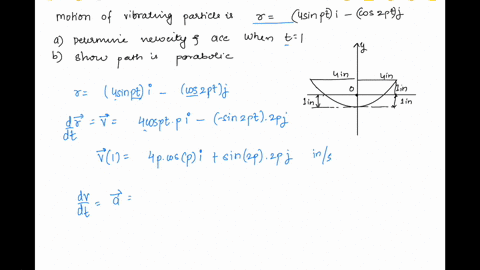 motion of vibrating particle is r = (4sinpt)i - (cos2pt)j
a) Determine velocity & acc when t=1
b) Show path is parabolic
y
4in 4in
O
1in 1in
r = (4sinpt)i - (cos2pt)j
dr/dt = v = 4cospt.p i - (-sin2pt).2pj
v(1) = 4p.cos(p)i + sin(2p).2pj in/s
dv/dt = a =